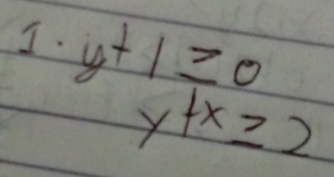 1. y + 1 ≥ 0
y + x ≥ 2